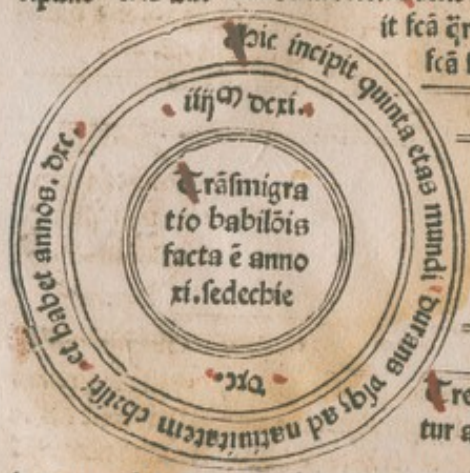 it scā q̄r
scā
Hic incipit quinta etas mundi durans vsqꝫ ad natiuitatem christi et habet annos. dxc.
.iiijM dcxi.
Trāsmigra
tio babilōis
facta ē anno
xi. sedechie
.dxc.
Tre
tur a